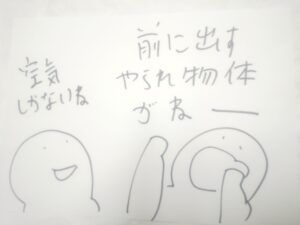 前に出す
やられ物体
がねー
空気
しかないね